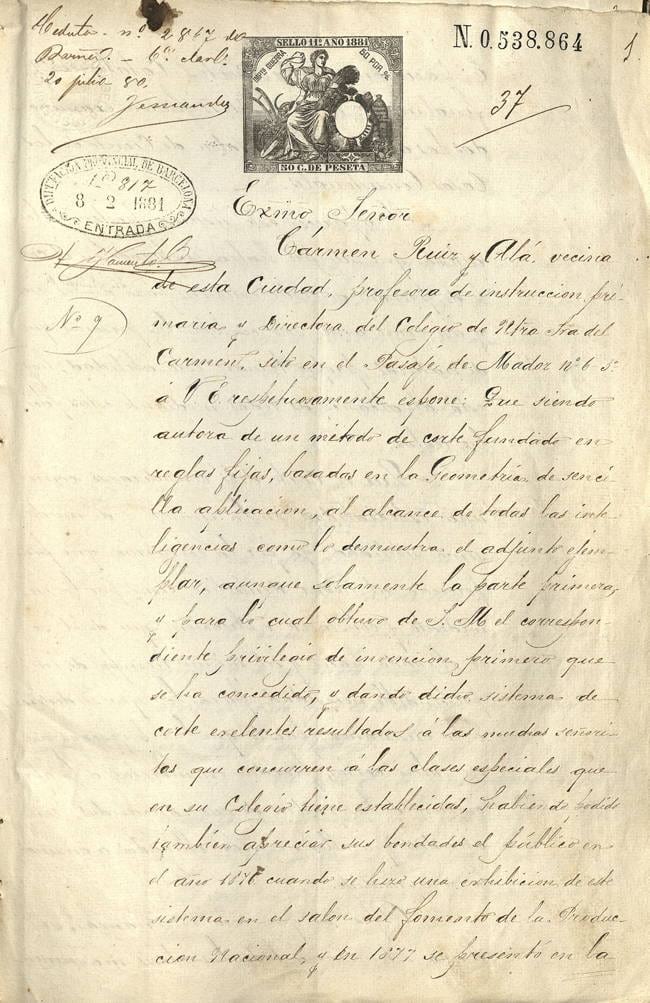 Cedula nº 2867 de
Barna - 6ª clase
20 julio 80.
Fernandez
SELLO 11º AÑO 1881
IMPTO GUERRA
50 POR %
50 C. DE PESETA
N. 0.538.864
1
37
DIPUTACION PROVINCIAL DE BARCELONA
Nº 817
8 2 1881
ENTRADA
Nº 9
Exmo Señor
Cármen Ruiz y Alá, vecina
de esta Ciudad, profesora de instruccion pri-
maria y Directora del Colegio de Ntra Sra del
Carmen, sito en el Pasaje de Mador nº 6-3º
á V. E. respetuosamente espone: Que siendo
autora de un método de corte fundado en
reglas fijas, basadas en la Geometría de senci-
lla aplicacion, al alcance de todas las inte-
ligencias como lo demuestra el adjunto ejem-
plar, aunque solamente la parte primera,
y para lo cual obtuvo de S. M el correspon-
diente privilegio de invencion, primero que
se ha concedido, y dando dicho sistema de
corte exelentes resultados á las muchas señori-
tas que concurren á las clases especiales que
en su Colegio tiene establecidas, habiendo podido
también apreciar sus bondades el público en
el año 1876 cuando se hizo una exhibicion de este
sistema en el salon del fomento de la Produc-
cion Nacional, y en 1877 se presentó en la